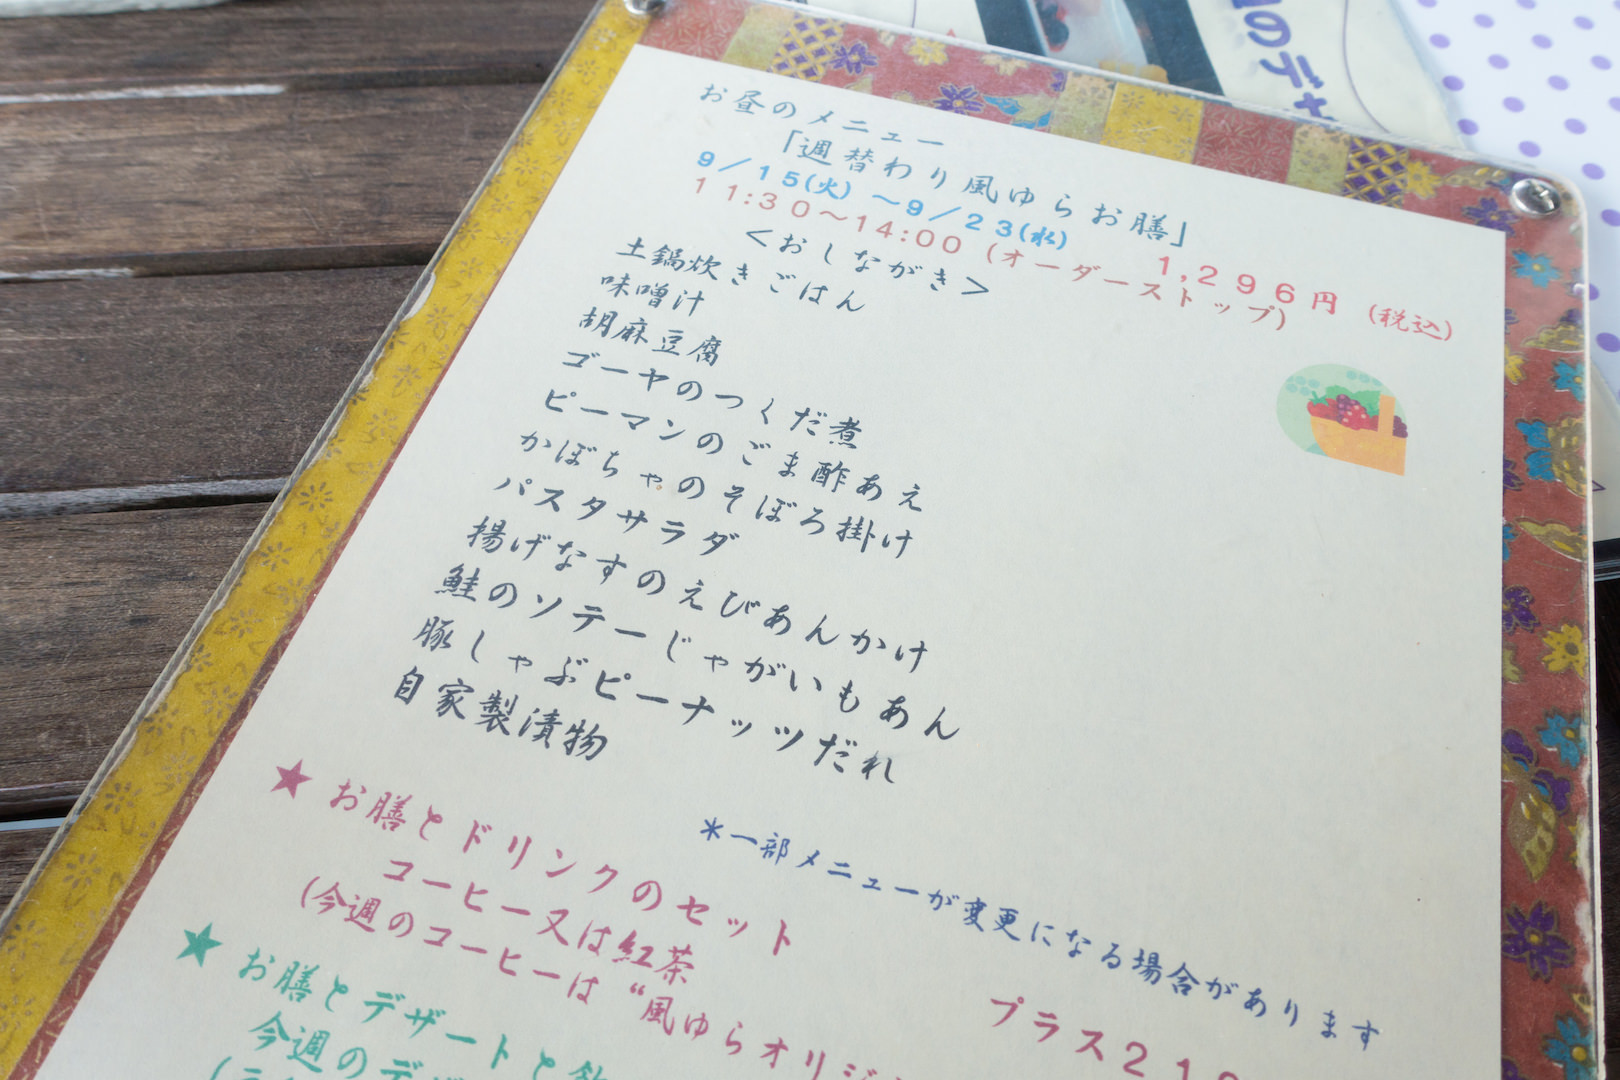 お昼のメニュー
「週替わり風ゆらお膳」
9／15(火)～9／23(水)
1,296円 (税込)
11:30～14:00 (オーダーストップ)
＜おしながき＞
土鍋炊きごはん
味噌汁
胡麻豆腐
ゴーヤのつくだ煮
ピーマンのごま酢あえ
かぼちゃのそぼろ掛け
パスタサラダ
揚げなすのえびあんかけ
鮭のソテーじゃがいもあん
豚しゃぶピーナッツだれ
自家製漬物
＊一部メニューが変更になる場合があります
★お膳とドリンクのセット
プラス21
コーヒー又は紅茶
(今週のコーヒーは“風ゆらオリジ
★お膳とデザートと
今週のデ
のデ